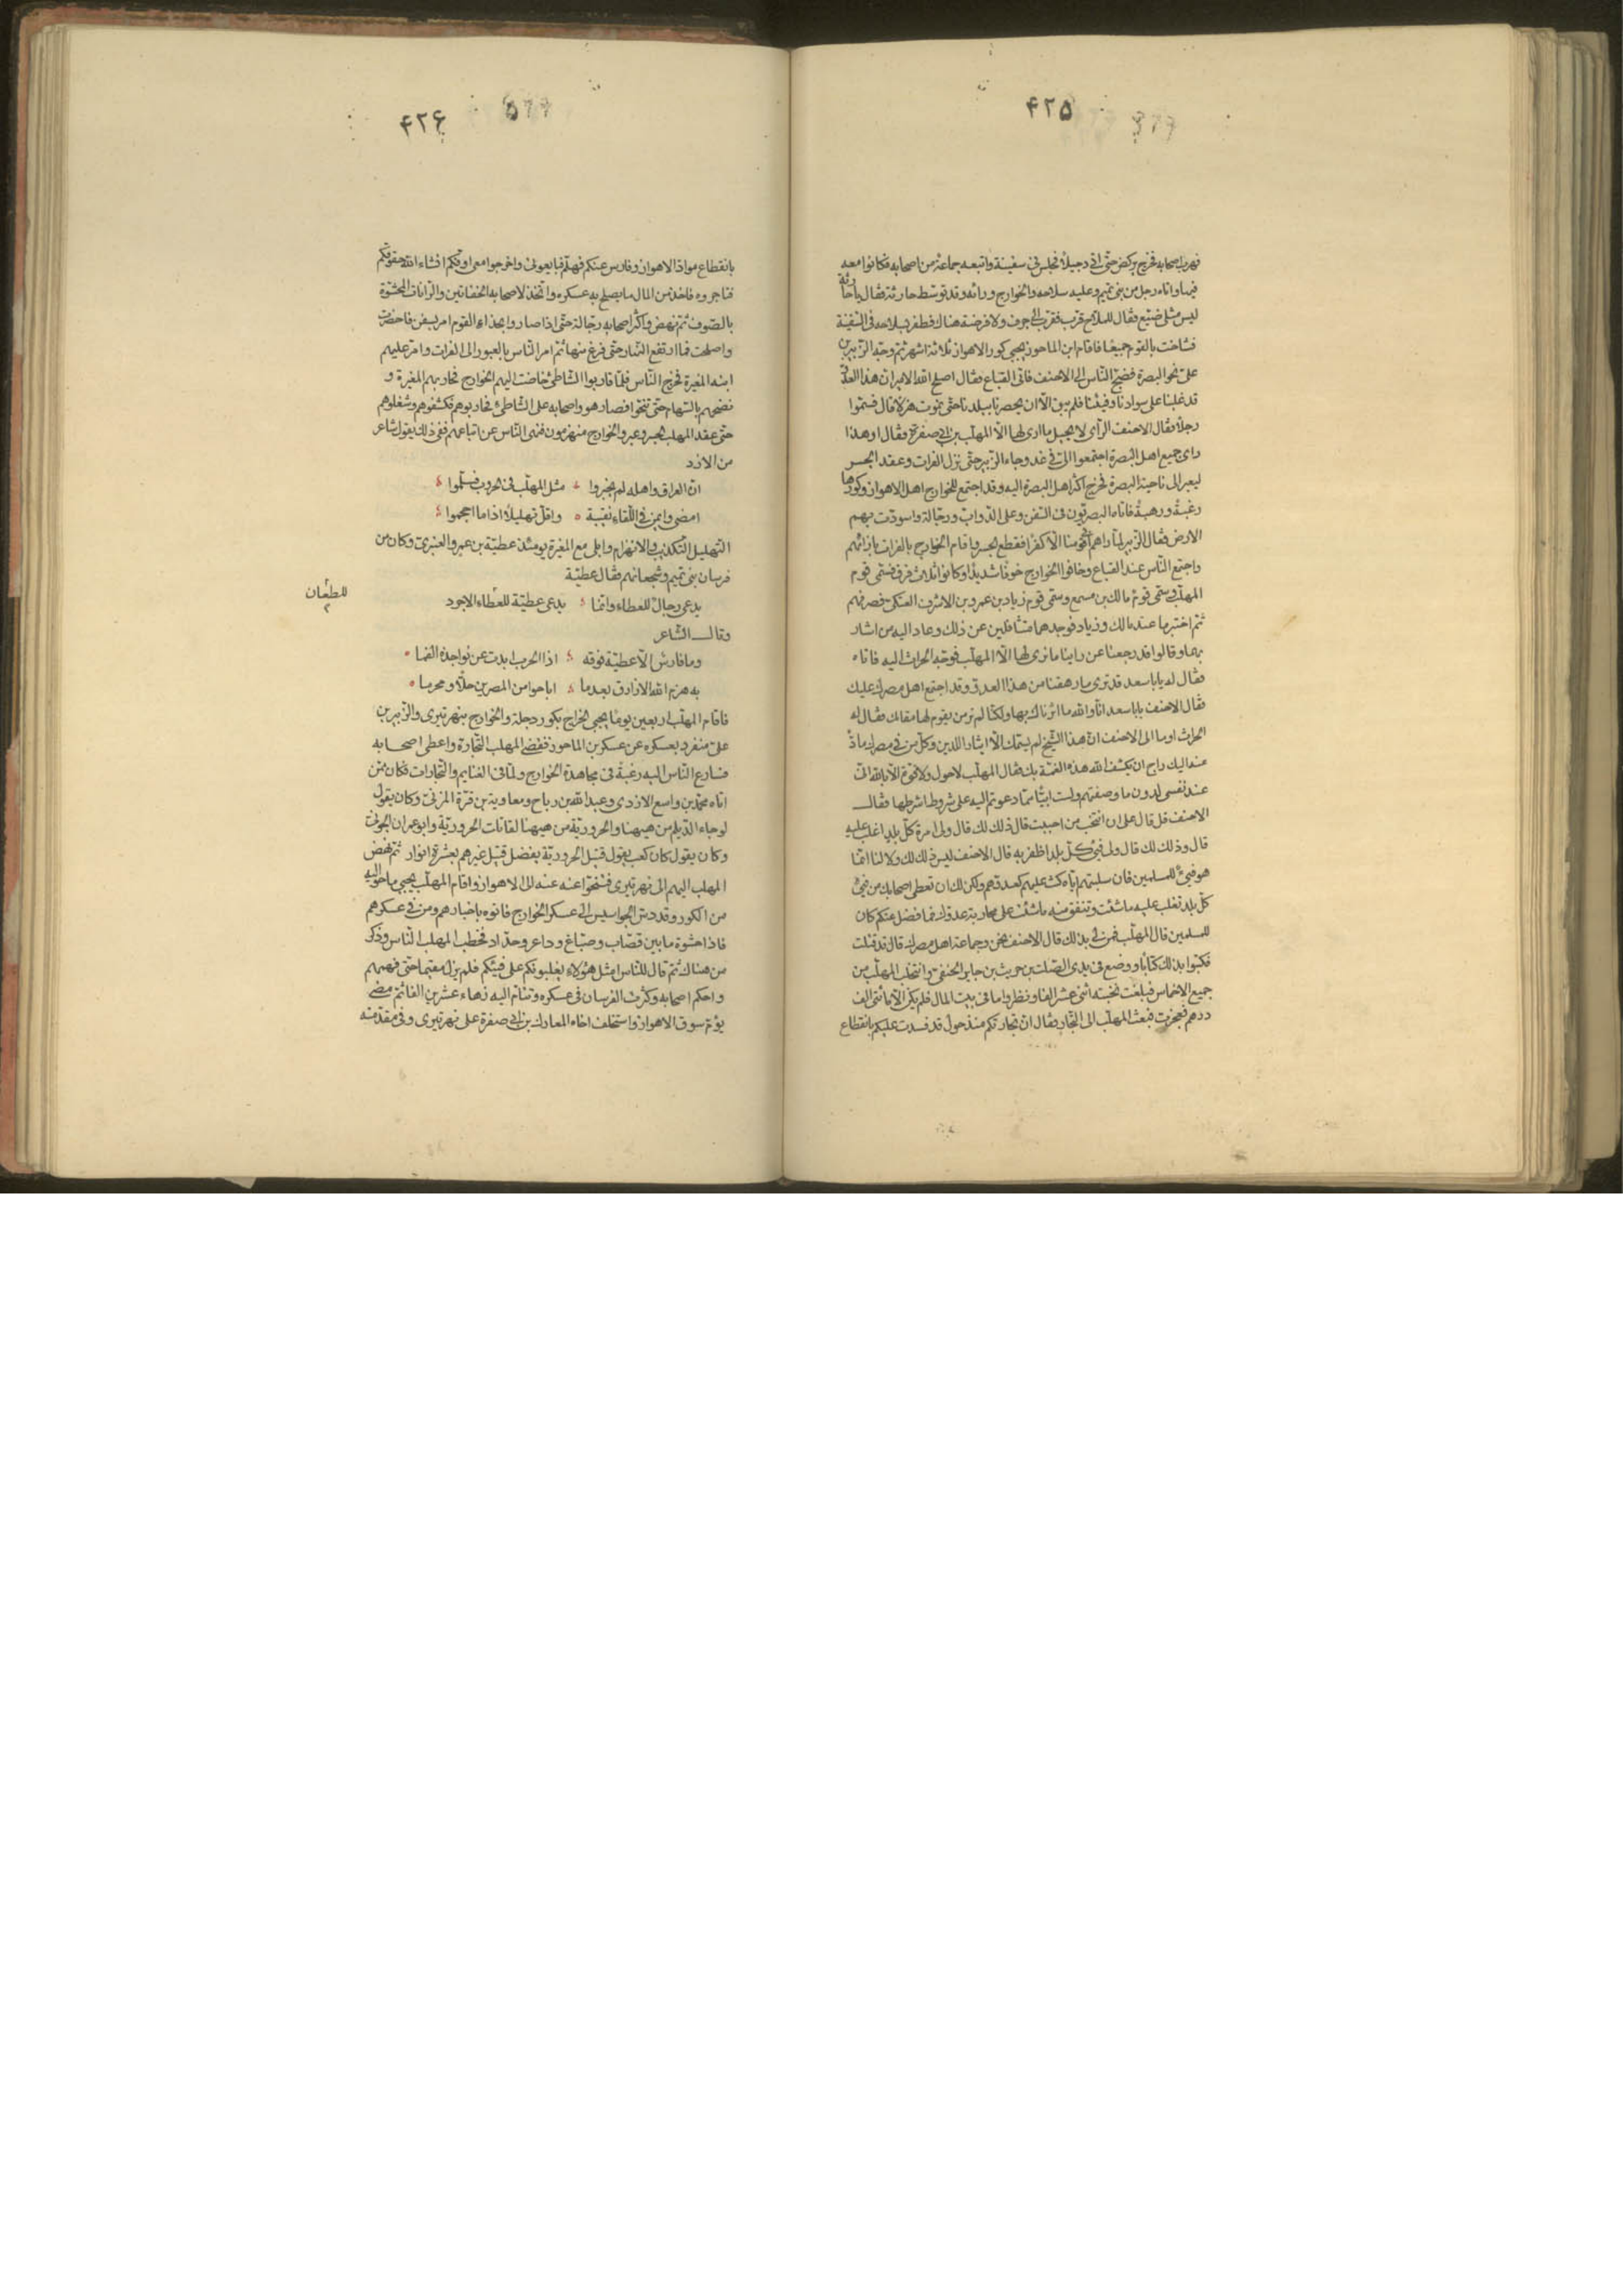 ۴۲۵
فهرب اصحابه فخرج يركض حتى اتى دجيلا فجلس فى سفينة واتبعه جماعة من اصحابه فكانوا معه
فيها واتاه رجل من بنى تميم وعليه سلاحه والخوارج ورائه وقد توسط حارثة فقال يا حارثة
ليس مثلى ضيع فقال للملاح قرب فقرب الى جرف ولا فرضة هناك فطفر بسلاحه فى السفينة
فساخت بالقوم جميعا فاقام ابن الماحوز يجبى كور الاهواز ثلاثة اشهر ثم وجه الزبير بن
على نحو البصرة فضج الناس الى الاحنف فاتى القباع فقال اصلح الله الامير ان هذا العدو
قد غلبنا على سوادنا وفيئنا فلم يبق الا ان يحصرنا ببلدنا حتى نموت هزلا قال فسموا
رجلا فقال الاحنف الرأى لا يخيل ما ارى لها الا المهلب بن ابى صفرة فقال او هذا
راى جميع اهل البصرة اجتمعوا الى فى غد وجاء الزبير حتى نزل الفرات وعقد الجسر
ليعبر الى ناحية البصرة فخرج اكثر اهل البصرة اليه وقد اجتمع للخوارج اهل الاهواز وكورها
رغبة ورهبة فاتاه البصريون فى السفن وعلى الدواب ورجالة واسودت بهم
الارض فقال الزبير لما راهم ابى قومنا الا كفرا فقطع الجسر واقام الخوارج بالفرات بازائهم
واجتمع الناس عند القباع وخافوا الخوارج خوفا شديدا وكانوا ثلاث فرق فسمى قوم
المهلب وسمى قوم مالك بن مسمع وسمى قوم زياد بن عمرو بن الاشرف العتكى فصرفهم
ثم اختبر ما عند مالك وزياد فوجدهما متثاقلين عن ذلك وعاد اليه من اشار
بهما وقالوا قد رجعنا عن راينا ما نرى لها الا المهلب فوجه الحرث اليه فاتاه
فقال له يابا سعد قد ترى ما رهقنا من هذا العدو وقد اجتمع اهل مصرك عليك
فقال الاحنف يابا سعد انا والله ما اثرناك بها ولكنا لم نر من يقوم لها مقامك فقال له
الحرث اوما الى الاحنف ان هذا الشيخ لم يسمك الا ايثارا للدين وكل من فى مصرك ماد
عينه اليك راج ان يكشف الله هذه الغمة بك فقال المهلب لا حول ولا قوة الا بالله انى
عند نفسى لدون ما وصفتم ولست ابيا مما دعوتم اليه على شروط اشرطها فقال
الاحنف قل قال على ان انتخب من احببت قال ذلك لك قال ولى امرة كل بلد اغلب عليه
قال وذلك لك قال ولى فيئ كل بلد اظفر به قال الاحنف ليس ذلك لك ولا لنا انما
هو فيئ للمسلمين فان سلبتهم اياه كنت عليهم كعدوهم ولكن لك ان تعطى اصحابك من فيئ
كل بلد تغلب عليه ما شئت وتنفق منه ما شئت على محاربة عدوك فما فضل عنكم كان
للمسلمين قال المهلب فمن لى بذلك قال الاحنف نحن وجماعة اهل مصرك قال قد قبلت
فكتبوا بذلك كتابا ووضع فى يدى الصلت بن حريث بن جابر الحنفى وانتخب المهلب من
جميع الاخماس فبلغت نخبته اثنى عشر الفا ونظروا ما فى بيت المال فلم يكن الا مائتى الف
درهم فعجزت فبعث المهلب الى التجار فقال ان تجارتكم منذ حول قد فسدت عليكم بانقطاع
۴۲۶
بانقطاع مواد الاهواز وفارس عنكم فهلم فبايعونى واخرجوا معى اوفكم انشاء الله حقوقكم
فتاجروه فاخذ من المال ما يصلح به عسكره واتخذ لاصحابه الخفاتين والرانات المحشوة
بالصوف ثم نهض واكثر اصحابه رجالة حتى اذا صاروا بحذاء القوم امر بسفن فاحضرت
واصلحت فما ارتفع النهار حتى فرغ منها ثم امر الناس بالعبور الى الفرات وامر عليهم
ابنه المغيرة فخرج الناس فلما قاربوا الشاطئ خاضت اليهم الخوارج فحاربهم المغيرة و
نضحهم بالسهام حتى تنحوا فصار هو واصحابه على الشاطئ فحاربوهم فكشفوهم وشغلوهم
حتى عقد المهلب الجسر وعبر والخوارج منهزمون فنهى الناس عن اتباعهم ففى ذلك يقول شاعر
من الازد
ان العراق واهله لم يخبروا مثل المهلب فى الحروب فسلموا
امضى وايمن فى اللقاء نقيبة واقل تهليلا اذا ما احجموا
التهليل التكذيب والانهزام وابلى مع المغيرة يومئذ عطية بن عمرو العنبرى وكان من
فرسان بنى تميم وشجعانهم فقال عطية
يدعى رجال للعطاء وانما يدعى عطية للعطاء الاجود
للطعان
وقال الشاعر
وما فارس الا عطية فوقه اذا الحرب ابدت عن نواجذه الفما
به هزم الله الازارق بعدما اباحوا من المصرين حلا ومحرما
فاقام المهلب اربعين يوما يجبى الخراج بكور دجلة والخوارج بنهر تيرى والزبير بن
على منفرد بعسكره عن عسكر بن الماحوز فقضى المهلب التجارة واعطى اصحابه
فسارع الناس اليه رغبة فى مجاهدة الخوارج ولما فى الغنايم والتجارات فكان ممن
اتاه محمد بن واسع الازدى وعبد الله بن رباح ومعاوية بن قرة المزنى وكان يقول
لو جاء الديلم من هيهنا والحرورية من هيهنا لقاتلت الحرورية وابو عمران الجونى
وكان يقول كان كعب يقول قتيل الحرورية يفضل قتيل غيرهم بعشرة انوار ثم نهض
المهلب اليهم الى نهر تيرى فتنحوا عنه الى الاهواز واقام المهلب يجبى ما حواليه
من الكور وقد دس الجواسيس الى عسكر الخوارج فاتوه باخبارهم ومن فى عسكرهم
فاذا حشوة ما بين قصاب وصباغ وداعر وحداد فخطب المهلب الناس وذكر
من هناك ثم قال للناس امثل هؤلاء يغلبونكم على فيئكم فلم يزل مقيما حتى فهمهم
واحكم اصحابه وكثرت الفرسان فى عسكره وتتام اليه زهاء عشرين الفا ثم مضى
يؤم سوق الاهواز واستخلف اخاه المعارك بن ابى صفرة على نهر تيرى وفى مقدمته